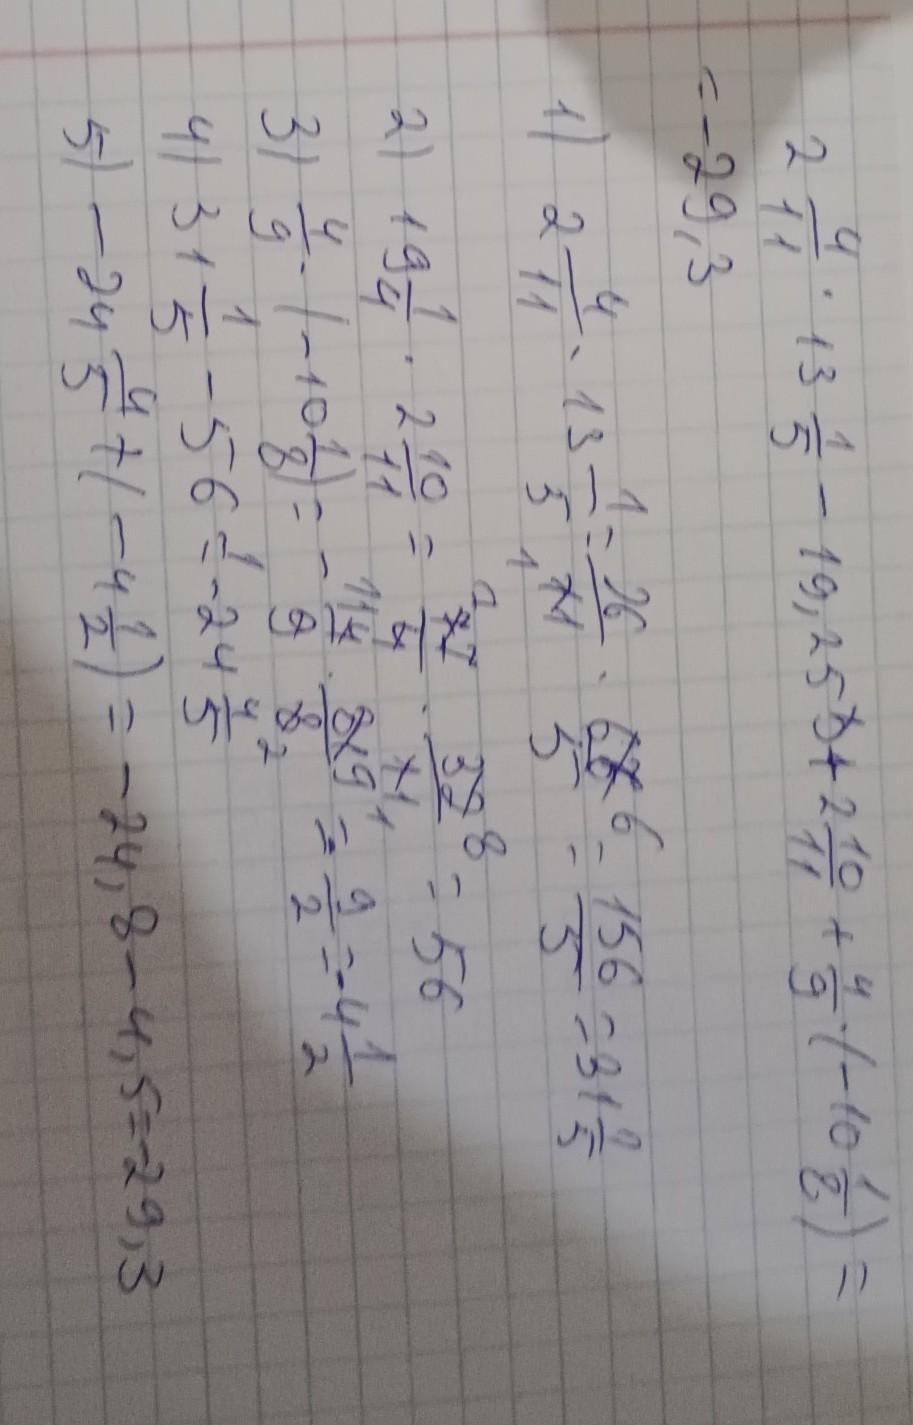 2 4/11 · 13 1/5 - 19,25 · 2 10/11 + 4/9 · (-10 1/8) =
= -29,3
1) 2 4/11 · 13 1/5 = 26/11 · 66/5 = 156/5 = 31 1/5
2) 19 1/4 · 2 10/11 = 77/4 · 32/11 = 56
3) 4/9 · (-10 1/8) = - 4/9 · 81/8 = 9/2 = -4 1/2
4) 31 1/5 - 56 = -24 4/5
5) -24 4/5 + (-4 1/2) = -24,8 - 4,5 = -29,3